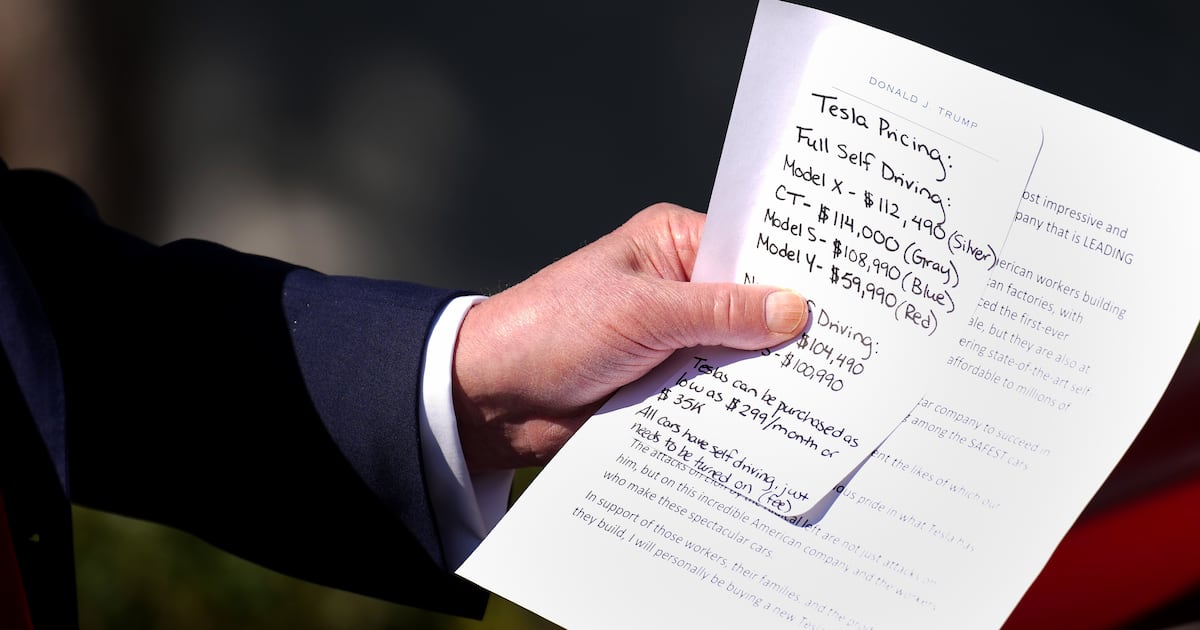 DONALD J. TRUMP
Tesla Pricing:
Full Self Driving:
Model X - $112,490 (Silver)
CT- $114,000 (Gray)
Model S- $108,990 (Blue)
Model Y- $59,990 (Red)
Driving:
$104,490
S- $100,990
Teslas can be purchased as
low as $299/month or
$35K
All cars have self driving, just
needs to be turned on (fee)
ost impressive and
pany that is LEADING
erican workers building
can factories, with
ced the first-ever
ale, but they are also at
ering state-of-the-art self
affordable to millions of
car company to succeed in
s among the SAFEST cars
ent the likes of which our
ous pride in what Tesla has
The attacks on left are not just attacks on
him, but on this incredible American company and the workers
who make these spectacular cars.
In support of those workers, their families, and the
they build, I will personally be buying a new